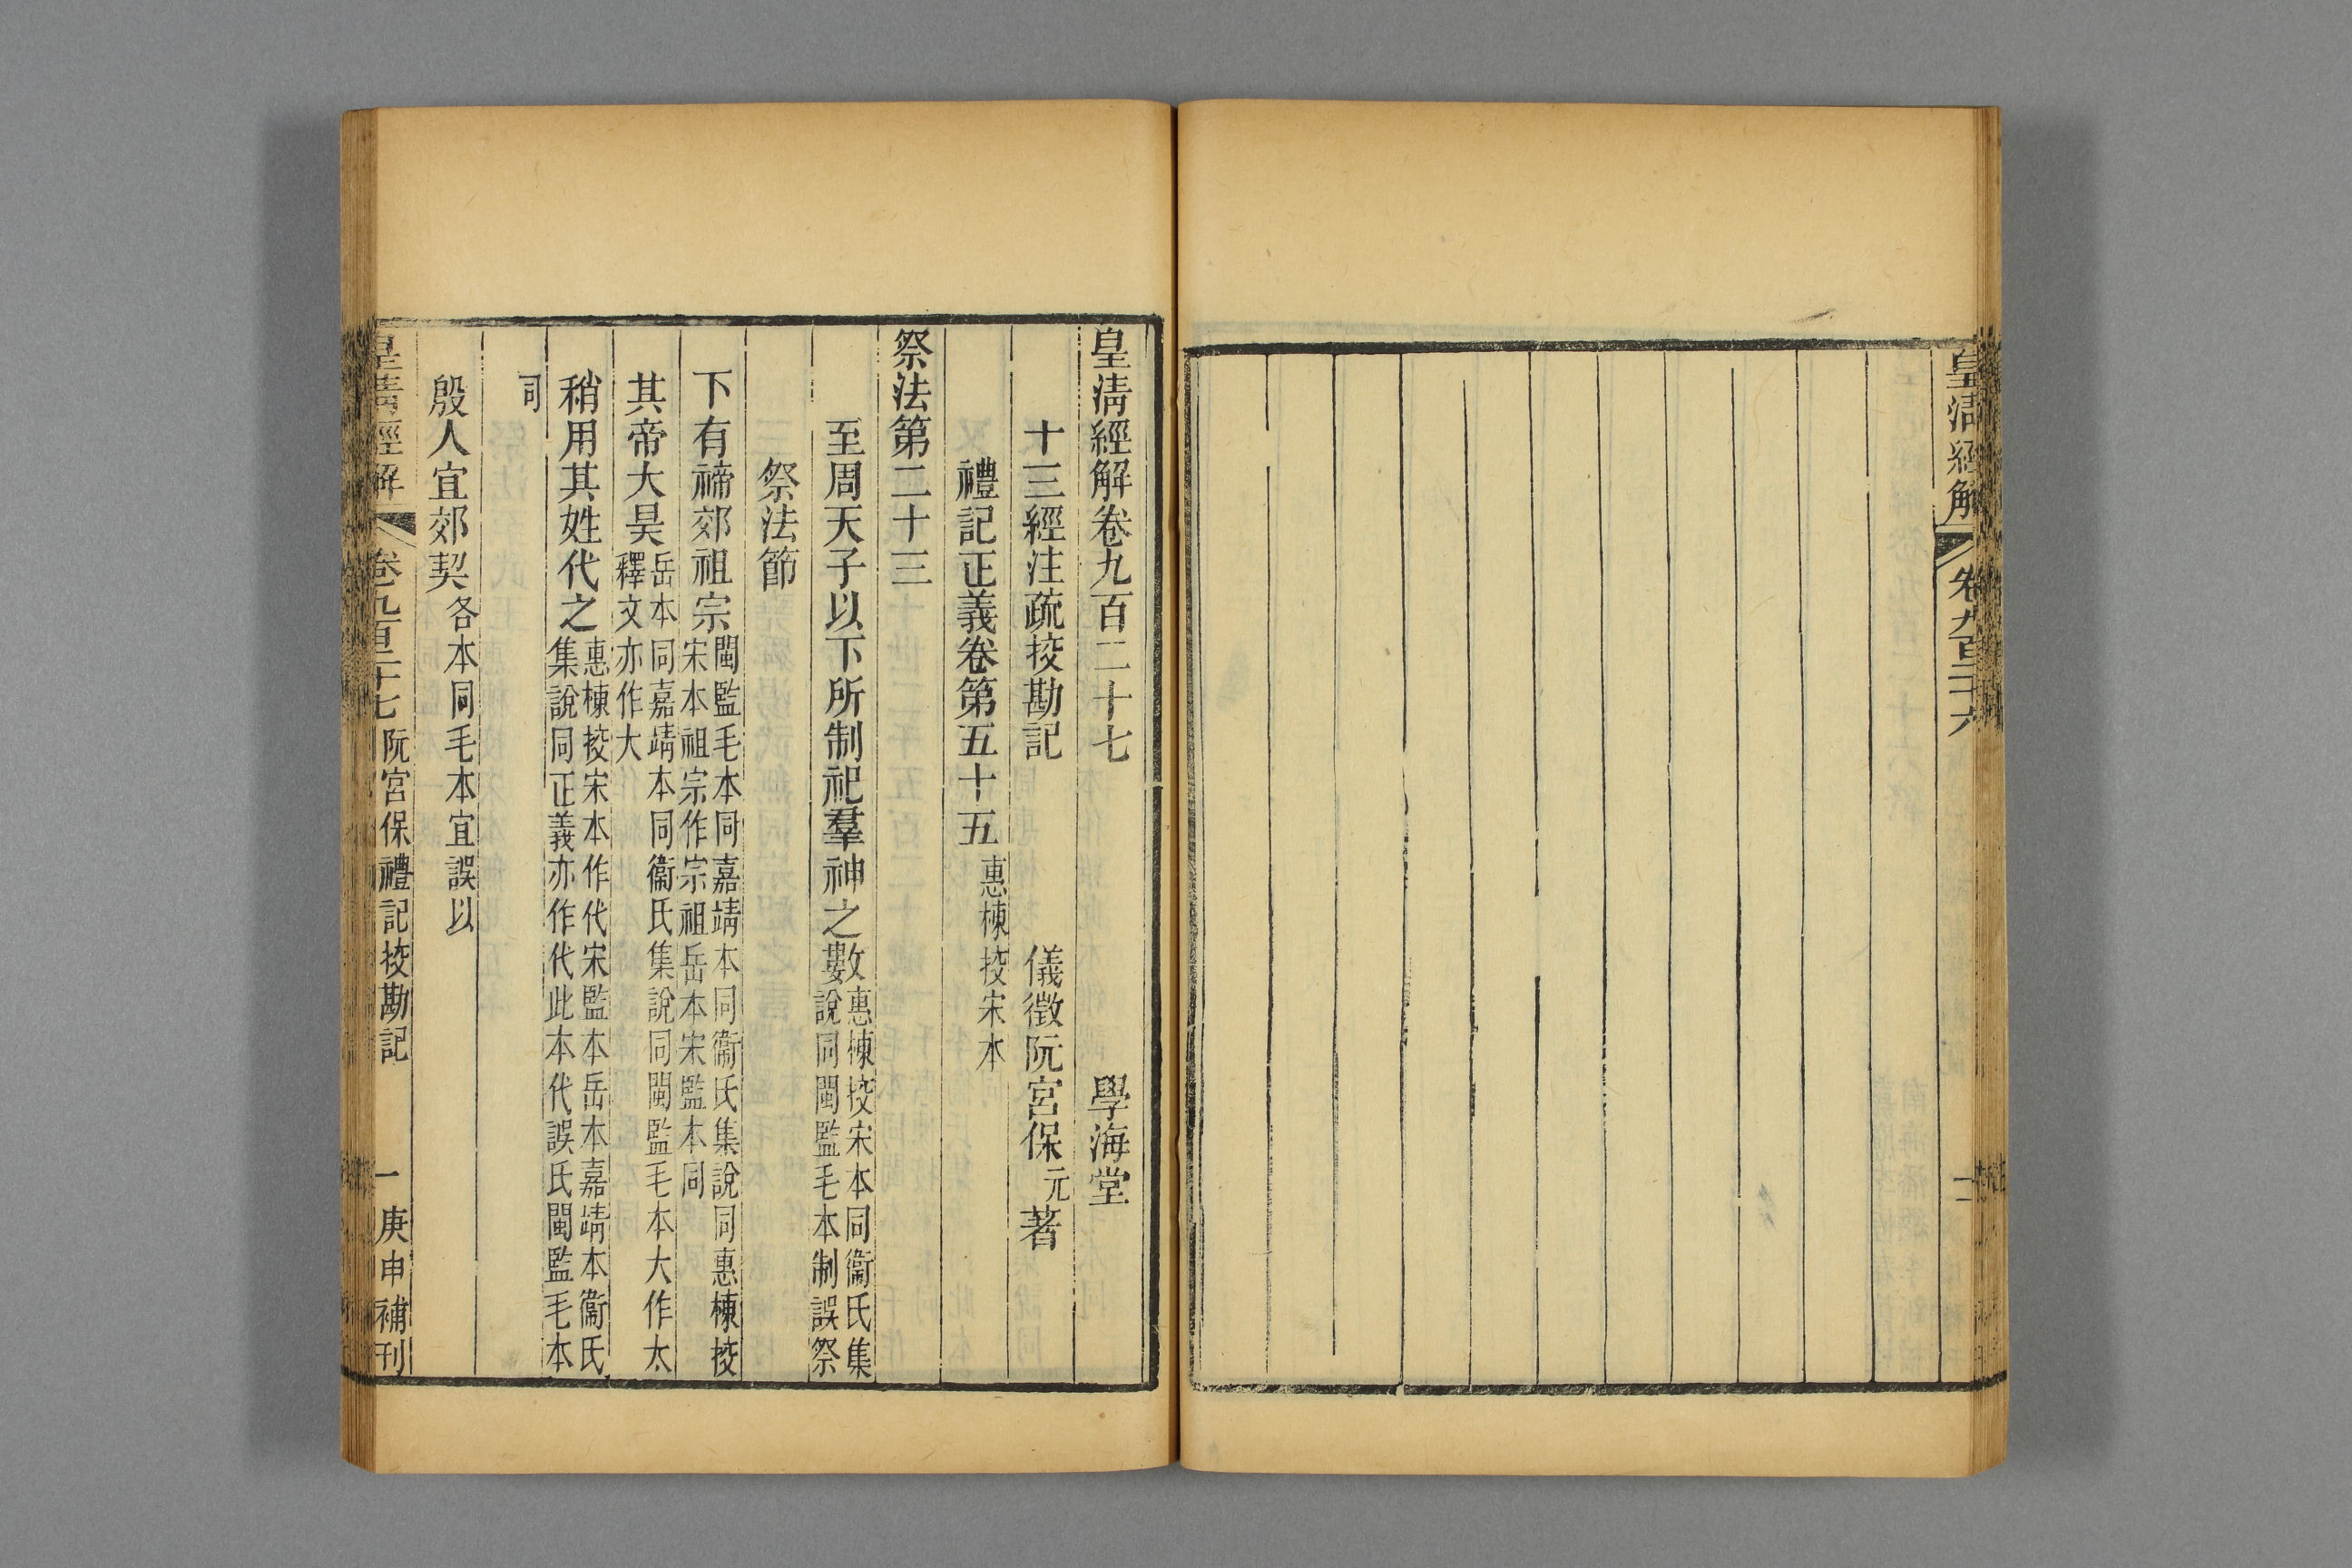 皇清經解
卷九百二十六
皇清經解卷九百二十七
學海堂
十三經注疏挍勘記
儀徵阮宮保元著
禮記正義卷第五十五惠棟挍宋本
祭法第二十三
至周天子以下所制祀羣神之數惠棟挍宋本同衞氏集
說同閩監毛本制誤祭
祭法節
下有禘郊祖宗閩監毛本同嘉靖本同衞氏集說同惠棟挍
宋本祖宗作宗祖岳本宋監本同
其帝大昊岳本同嘉靖本同衞氏集說同閩監毛本大作太
釋文亦作大
稍用其姓代之惠棟挍宋本作代宋監本岳本嘉靖本衞氏
集說同正義亦作代此本代誤氏閩監毛本
同
殷人宜郊契各本同毛本宜誤以
皇清經解
卷九百二十七
阮宮保禮記挍勘記
一
庚申補刊